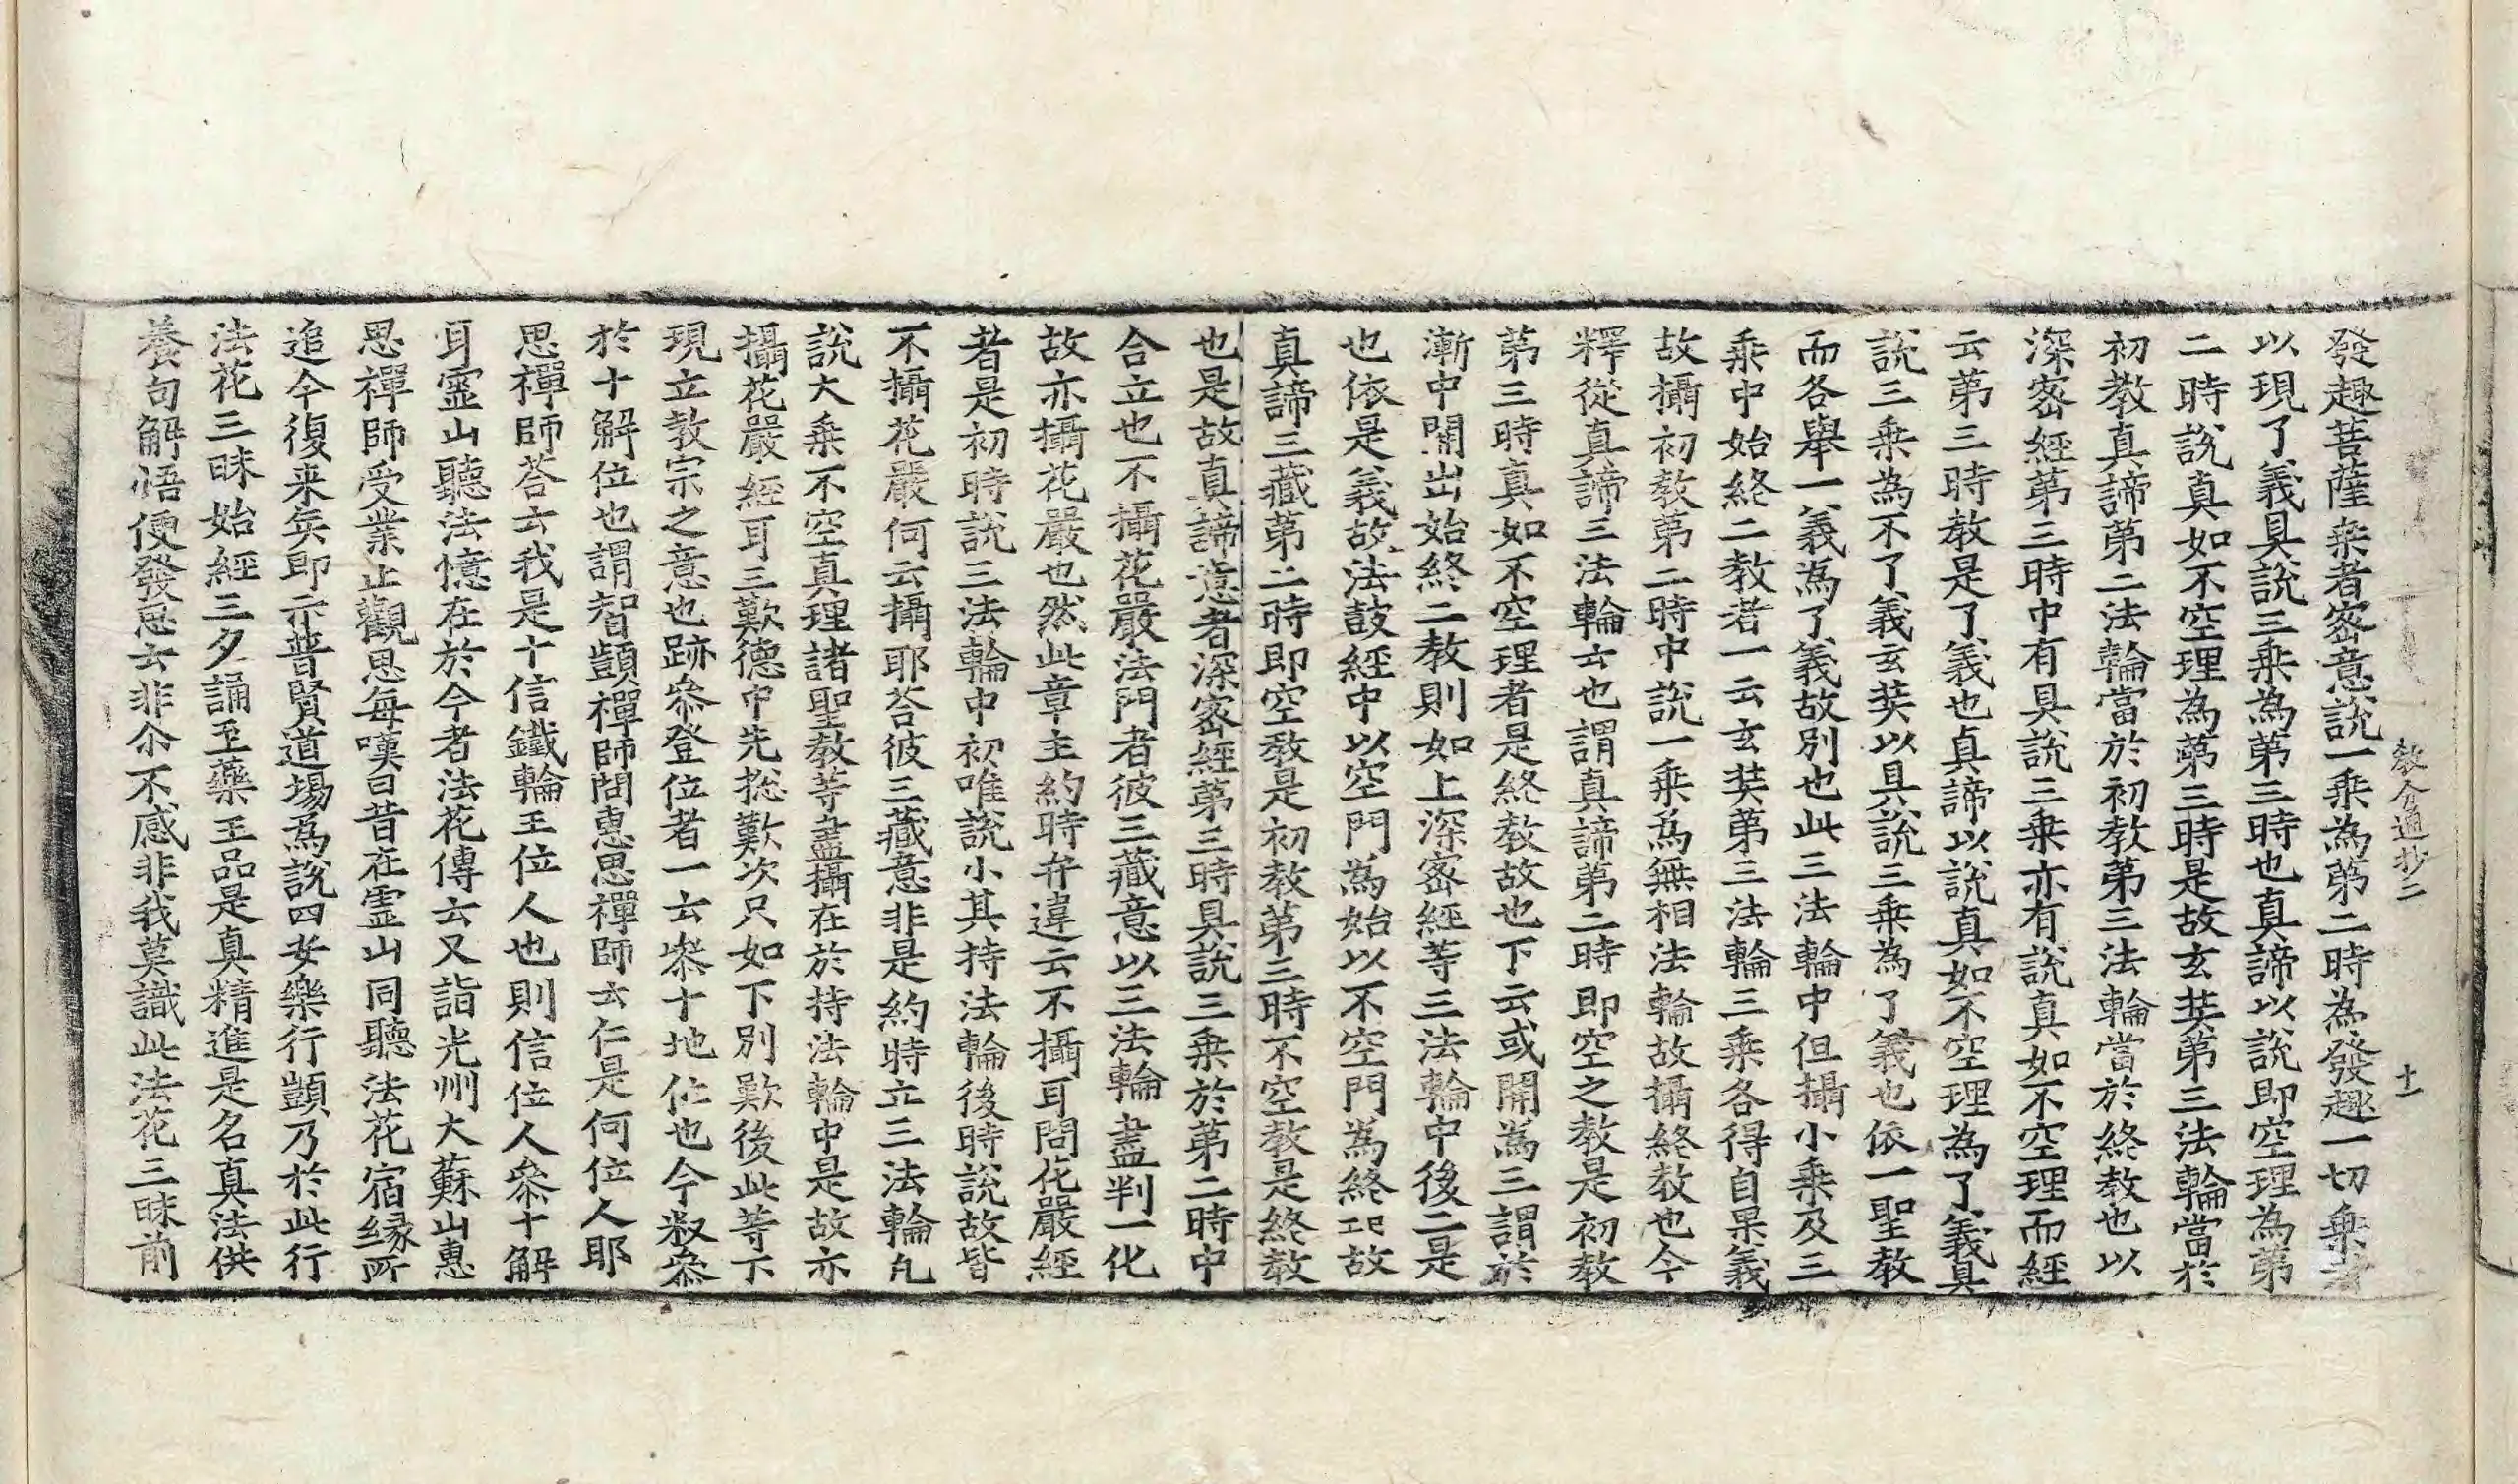 教分通抄二 十一
發趣菩薩乘者密意說一乘為第二時為發趣一切乘者
以現了義具說三乘為第三時也真諦以說即空理為第
二時說真如不空理為第三時是故玄奘第三法輪當於
初教真諦第二法輪當於初教第三法輪當於終教也以
深密經第三時中有具說三乘亦有說真如不空理而經
云第三時教是了義也真諦以說真如不空理為了義具
說三乘為不了義玄奘以具說三乘為了義也依一聖教
而各舉一義為了義故別也此三法輪中但攝小乘及三
乘中始終二教者一云玄奘第三法輪三乘各得自果義
故攝初教第二時中說一乘為無相法輪故攝終教也今
釋從真諦三法輪云也謂真諦第二時即空之教是初教
第三時真如不空理者是終教故也下云或開為三謂於
漸中開出始終二教則如上深密經等三法輪中後二是
也依是義故法鼓經中以空門為始以不空門為終云云故
真諦三藏第二時即空教是初教第三時不空教是終教
也是故真諦意者深密經第三時具說三乘於第二時中
合立也不攝花嚴法門者彼三藏意以三法輪盡判一化
故亦攝花嚴也然此章主約時弁違云不攝耳問花嚴經
者是初時說三法輪中初唯說小其持法輪後時說故皆
不攝花嚴何云攝耶荅彼三藏意非是約時立三法輪凡
說大乘不空真理諸聖教等盡攝在於持法輪中是故亦
攝花嚴經耳三歎德中先捴歎次只如下別歎後此等下
現立教宗之意也跡叅登位者一云叅十地位也今叙叅
於十解位也謂智顗禪師問惠思禪師云仁是何位人耶
思禪師荅云我是十信鐵輪王位人也則信位人叅十解
耳靈山聽法憶在於今者法花傳云又詣光州大蘇山惠
思禪師受業止觀思每嘆曰昔在靈山同聽法花宿緣所
追今復来矣即示普賢道場為說四安樂行顗乃於此行
法花三昧始經三夕誦至藥王品是真精進是名真法供
養句解悟便發思云非尒不感非我莫識此法花三昧前